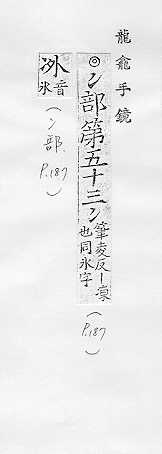 龍龕手鏡
◎冫部第五十三冫筆夌反丨
也同氷字
(P.187)
音氷
(冫部 P.187)